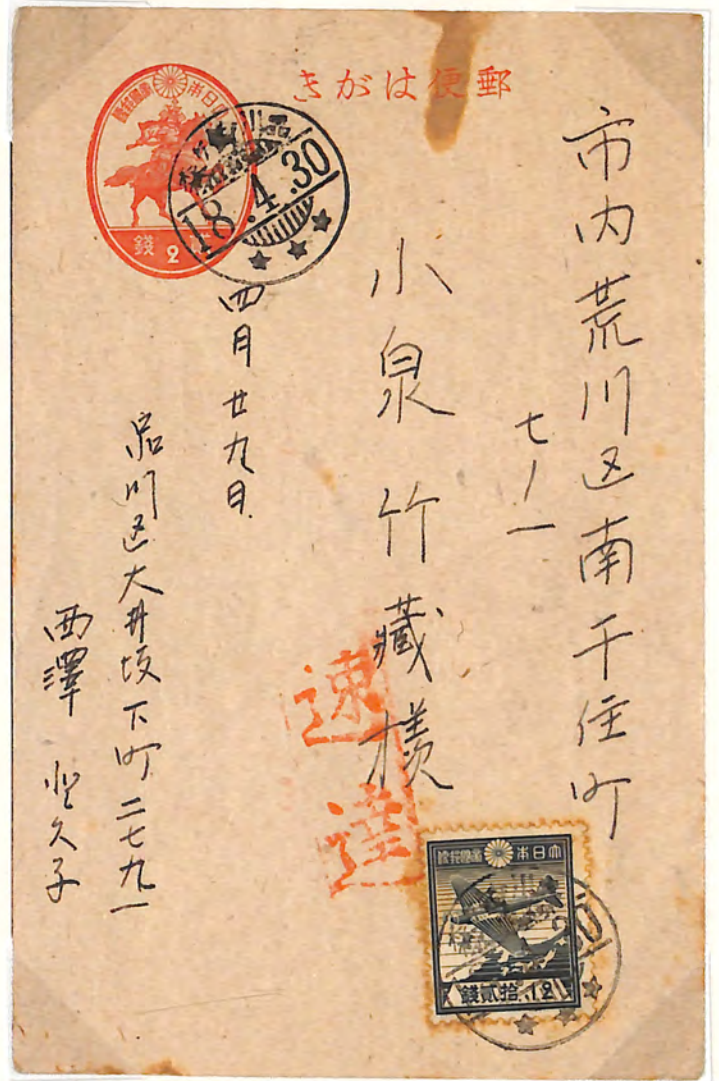 郵便はがき
大日本帝國郵便
2 錢
18.4.30
市内荒川区南千住町
七ノ一
小泉竹藏様
速達
四月廿九日
品川区大井坂下町二七九一
西澤 久子
大日本帝國郵便
錢貳拾 12